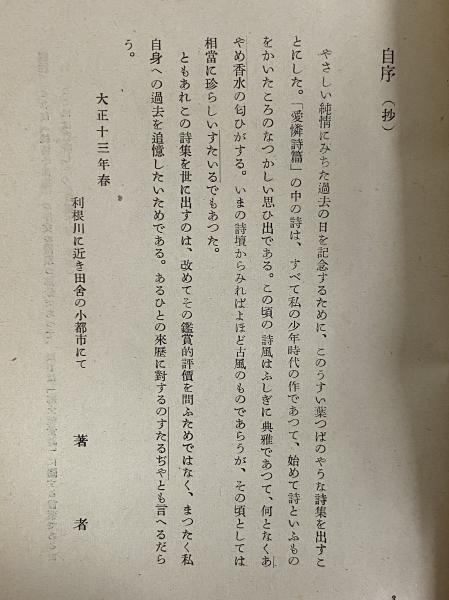 自序(抄)
やさしい純情にみちた過去の日を記念するために、このうすい葉つぱのやうな詩集を出すこ
とにした。「愛憐詩篇」の中の詩は、すべて私の少年時代の作であつて、始めて詩といふもの
をかいたころのなつかしい思ひ出である。この頃の詩風はふしぎに典雅であつて、何となくあ
やめ香水の匂ひがする。いまの詩壇からみればよほど古風のものであらうが、その頃としては
相當に珍らしいすたいるでもあつた。
ともあれこの詩集を世に出すのは、改めてその鑑賞的評價を問ふためではなく、まつたく私
自身への過去を追憶したいためである。あるひとの來歷に對するのすたるぢやとも言へるだら
う。
大正十三年春
利根川に近き田舍の小都市にて
著者